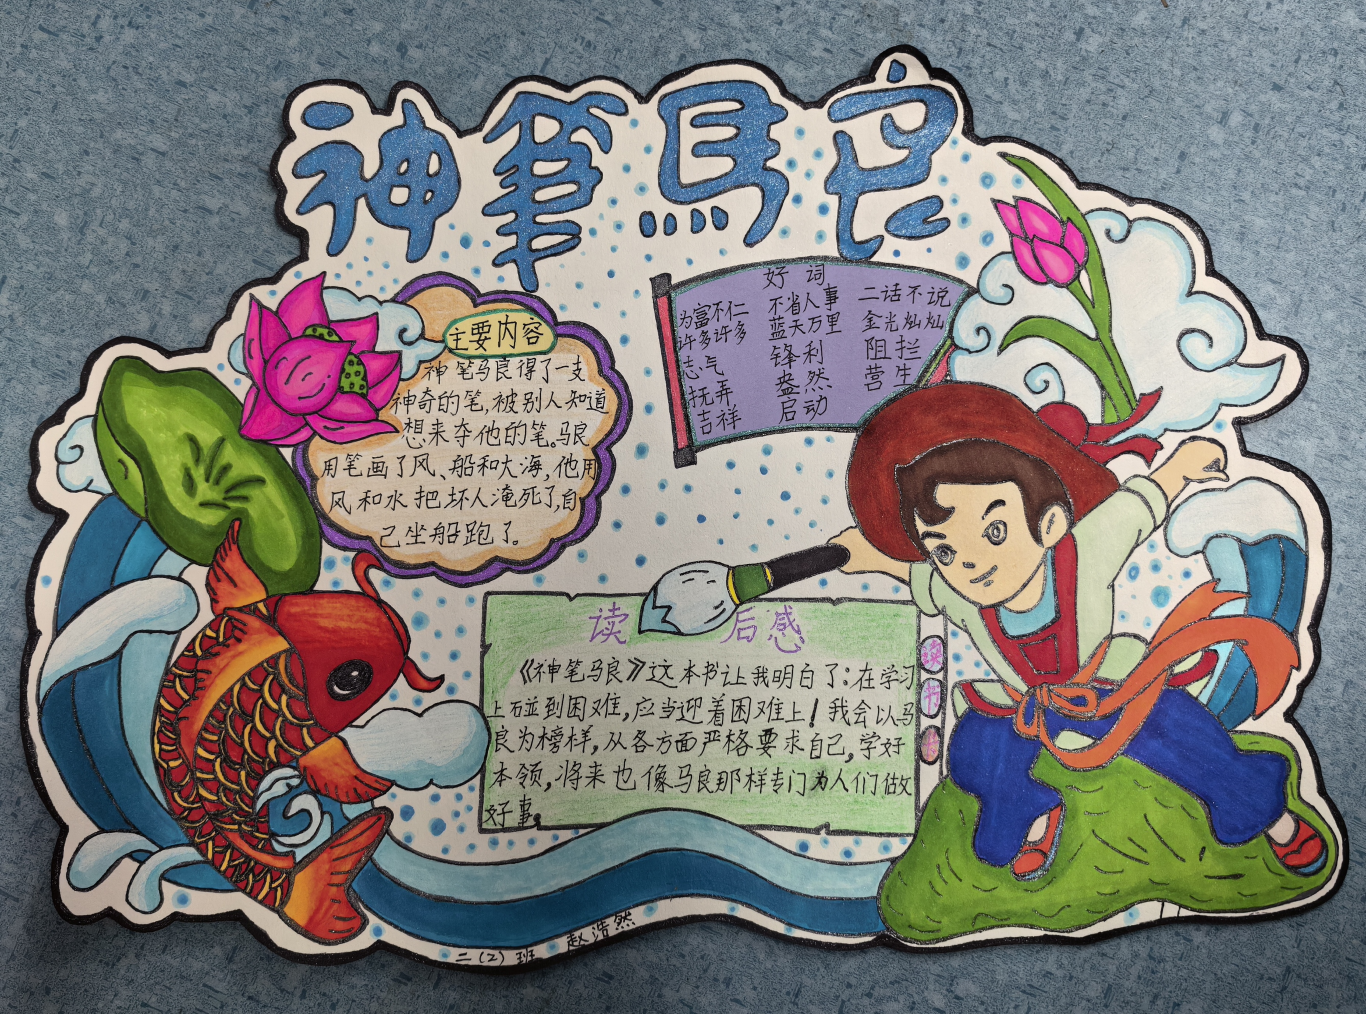 神笔马良
主要内容
神笔马良得了一支
神奇的笔,被别人知道
想来夺他的笔。马良
用笔画了风、船和大海,他用
风和水把坏人淹死了,自
己坐船跑了。
好词
为富不仁 不省人事 二话不说
许多许多 蓝天万里 金光灿灿
志气 锋利 阻拦
抚弄 盎然 营生
吉祥 启动
读后感
《神笔马良》这本书让我明白了:在学习
上碰到困难,应当迎着困难上!我会以马
良为榜样,从各方面严格要求自己,学好
本领,将来也像马良那样专门为人们做
好事。
读
书
二(2)班 赵浩然